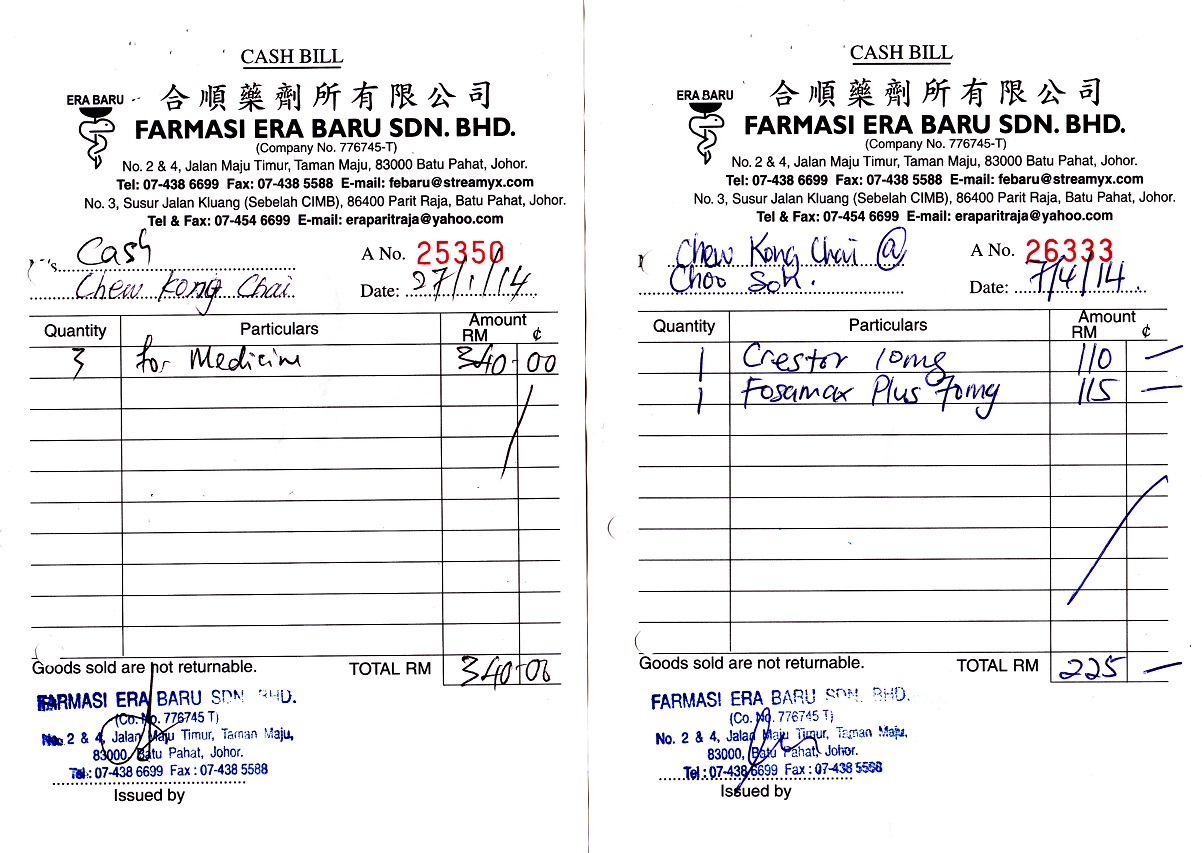 CASH BILL
ERA BARU
合順藥劑所有限公司
FARMASI ERA BARU SDN. BHD.
(Company No. 776745-T)
No. 2 & 4, Jalan Maju Timur, Taman Maju, 83000 Batu Pahat, Johor.
Tel: 07-438 6699 Fax: 07-438 5588 E-mail: febaru@streamyx.com
No. 3, Susur Jalan Kluang (Sebelah CIMB), 86400 Parit Raja, Batu Pahat, Johor.
Tel & Fax: 07-454 6699 E-mail: eraparitraja@yahoo.com
Cash
A No. 25350
Chew Kong Chai
Date: 27/1/14
Quantity Particulars Amount
RM ¢
3 for Medicine 340-00
Goods sold are not returnable. TOTAL RM 340-00
FARMASI ERA BARU SDN. BHD.
(Co. No. 776745 T)
No. 2 & 4, Jalan Maju Timur, Taman Maju,
83000 Batu Pahat, Johor.
Tel: 07-438 6699 Fax: 07-438 5588
Issued by
CASH BILL
ERA BARU
合順藥劑所有限公司
FARMASI ERA BARU SDN. BHD.
(Company No. 776745-T)
No. 2 & 4, Jalan Maju Timur, Taman Maju, 83000 Batu Pahat, Johor.
Tel: 07-438 6699 Fax: 07-438 5588 E-mail: febaru@streamyx.com
No. 3, Susur Jalan Kluang (Sebelah CIMB), 86400 Parit Raja, Batu Pahat, Johor.
Tel & Fax: 07-454 6699 E-mail: eraparitraja@yahoo.com
Chew Kong Chai @
A No. 26333
Choo Soh.
Date: 7/4/14
Quantity Particulars Amount
RM ¢
1 Crestor 10mg 110 —
1 Fosamax Plus 70mg 115 —
Goods sold are not returnable. TOTAL RM 225 —
FARMASI ERA BARU SDN. BHD.
(Co. No. 776745 T)
No. 2 & 4, Jalan Maju Timur, Taman Maju,
83000, Batu Pahat, Johor.
Tel: 07-438 6699 Fax: 07-438 5588
Issued by